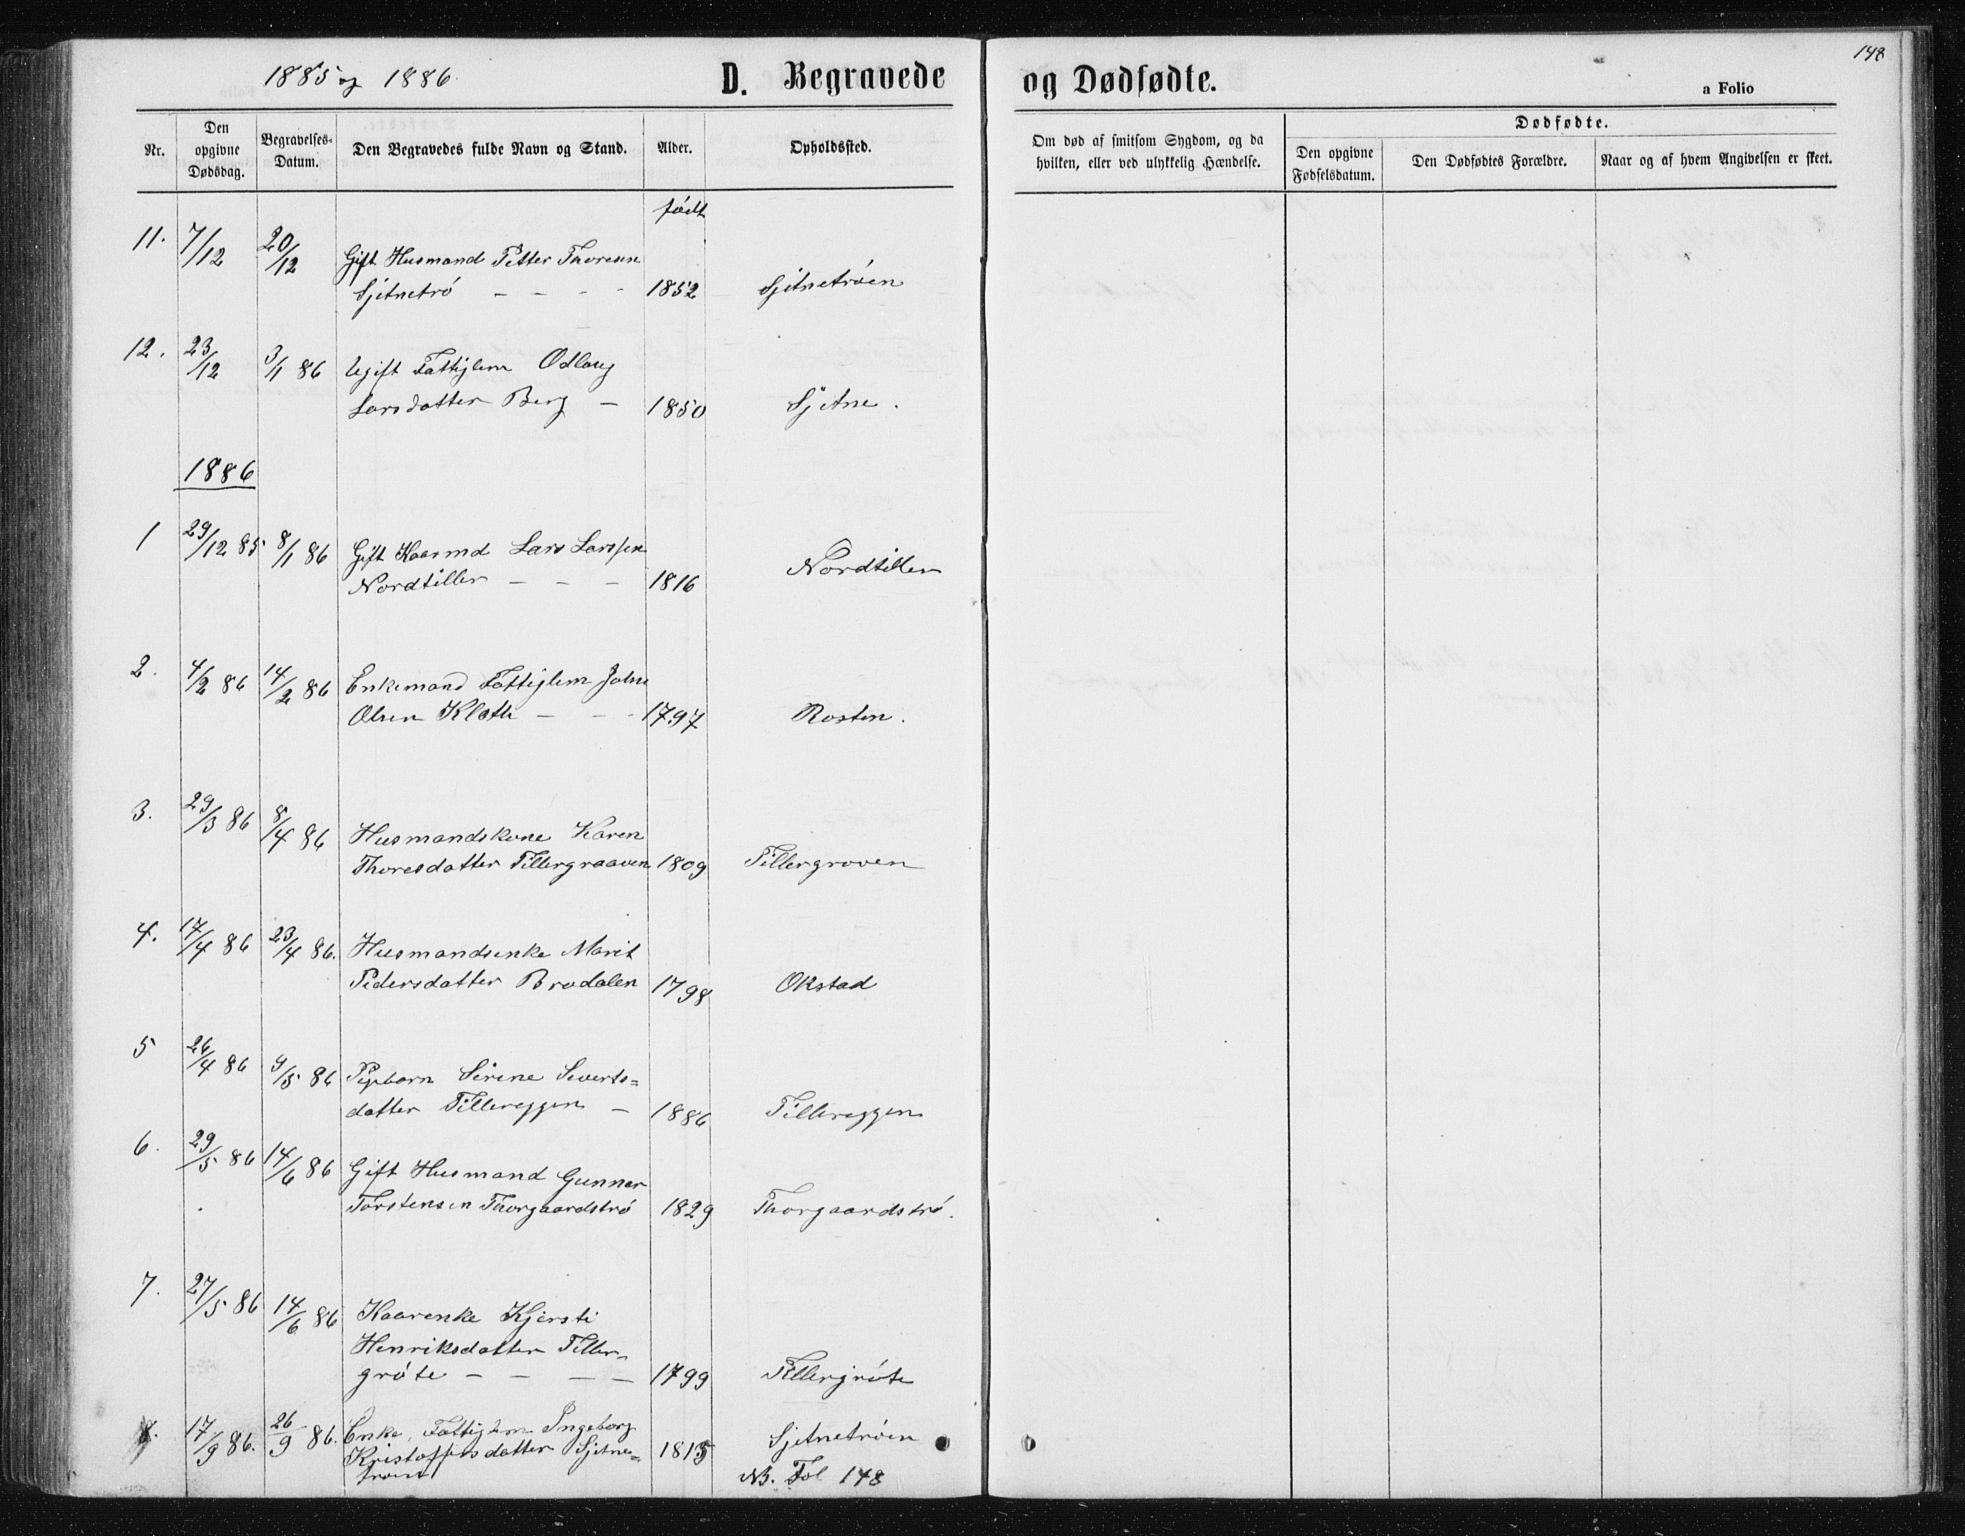 1885 og 1886
D. Begravede og Dødfødte.
148
a Folio
Nr.
Den opgivne Dødsdag.
Begravelses-Datum.
Den Begravedes fulde Navn og Stand.
Alder.
Opholdssted.
Om død af smitsom Sygdom, og da hvilken, eller ved ulykkelig Hændelse.
Dødfødte.
Den opgivne Fødselsdatum.
Den Dødfødtes Forældre.
Naar og af hvem Angivelsen er skeet.
født
11. 7/12 20/12 Gift Husmand Petter Thoresen
Sjetnetrø - - - 1852 Sjetnetrøen
12. 23/12 3/1 86 Ugift Fattiglem Odlaug
Larsdatter Berg - 1850 Sjetne.
1886
1 29/12 85 8/1 86 Gift Kaarmd Lars Larssen
Nordtiller - - - 1816 Nordtiller
2. 4/2 86 14/2 86 Enkemand Fattiglem John
Olsen Klætt - - - 1797 Rosten.
3. 29/3 86 8/4 86 Husmandskone Karen
Thoresdatter Tillergraaven 1809 Tillergroven
4. 17/4 86 23/4 86. Husmandsenke Marit
Pedersdatter Brødalen 1798 Okstad
5 26/4 86 9/5 86 Pigebarn Sirine Siverts=
datter Tillereggen - 1886 Tillereggen
6. 29/5 86 14/6 86 Gift Husmand Gunner
Torstensen Thorgaardstrø 1829 Thorgaardstrø.
7. 27/5 86 14/6 86 Kaarenke Kjersti
Henriksdatter Tiller-
grøte - - - - 1799 Tillergrøte
8. 17/9 86. 26/9 86. Enke, Fattiglem Ingeborg
Kristoffersdatter Sjetne= 1815 Sjetnetrøen
trøen NB. Fol 148